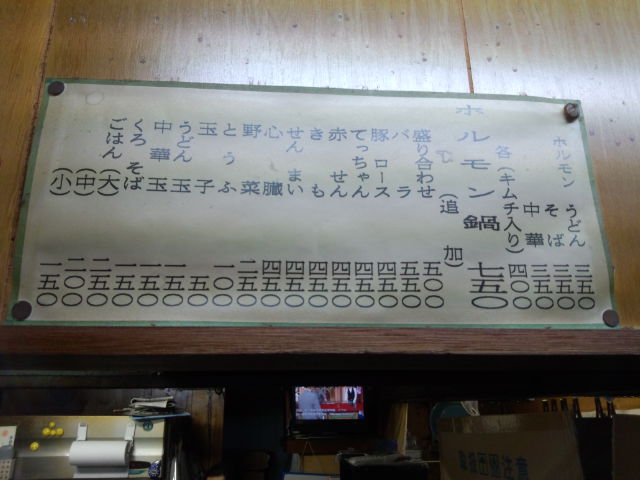 ホルモン うどん 三五〇
そば 三五〇
中華 三五〇
各(キムチ入り) 四〇〇
ホルモン鍋 七五〇
(追加)
盛り合わせ 五〇〇
バラ 五五〇
豚ロース 四五〇
てっちゃん 四五〇
赤せん 四五〇
きも 四五〇
せんまい 四五〇
心臓 四五〇
野菜 二五〇
とうふ 一〇〇
玉子 五〇
うどん玉 一五〇
中華玉 一五〇
くろそば 一五〇
ごはん (大) 二五〇
(中) 二〇〇
(小) 一五〇
注意